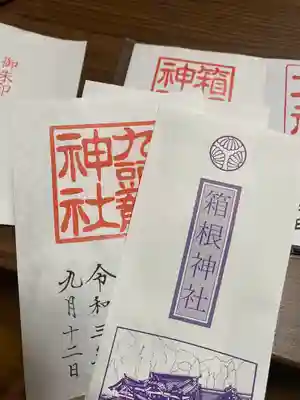 御朱印
箱
神
九頭龍
神社
令和三
九月十二日
箱根神社